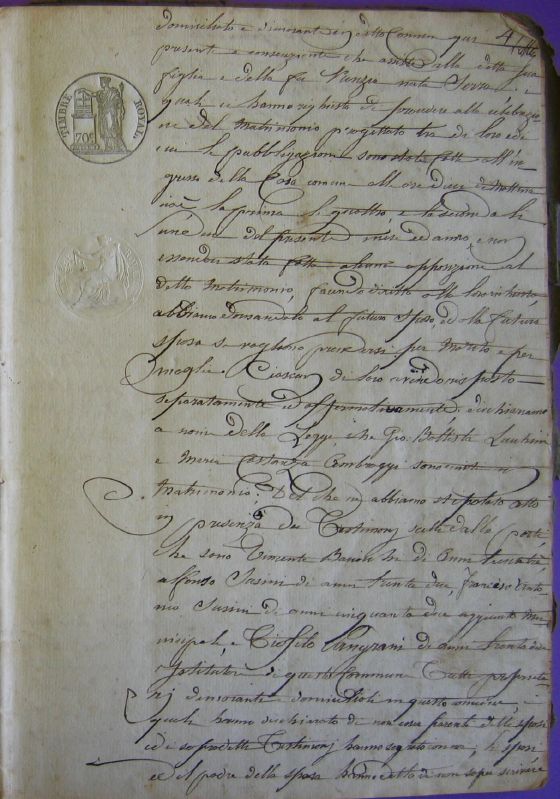 TIMBRE ROYAL
70c
4
domiciliato e dimorante in detto Comune qui
presente e consenziente che assiste alla detta sua
figlia e della fu Nunzia nata Serra i
quali ci hanno richiesto di procedere alla celebrazio
ne del Matrimonio progettato tra di loro ed i
cui le pubblicazioni sono state fatte all'in
gresso della Casa comune alle ore dieci di Mattina
cioè la prima li quattro e la seconda li
undeci del presente mese ed anno, e non
essendoci stata fatta alcuna opposizione al
detto Matrimonio, facendo diritto alla loro richiesta
abbiamo domandato al futuro sposo, ed alla futura
sposa se vogliono prendersi per Marito e per
moglie. Ciascun di loro avendo risposto
separatamente ed affermativamente dichiariamo
a nome della Legge che Gio. Battista
e Maria Costanza sono uniti in
Matrimonio; Del che ne abbiamo stipolato atto
in presenza dei Testimonj scelti dalle parti
che sono Vincente di anni
Alfonso Susini di anni trenta due, Francesco Anto
nio Susini di anni cinquanta due aggiunto Mu
nicipale, e Tiofilo di anni trenta
Istitutore di questa Commune Tutti proprieta
rj dimoranti e domiciliati in questo comune, i
quali hanno dichiarato di non esser parenti delli sposi
ed i sopradetti Testimonj hanno segnato con noi, li sposi
ed il padre della sposa hanno detto di non saper scrivere